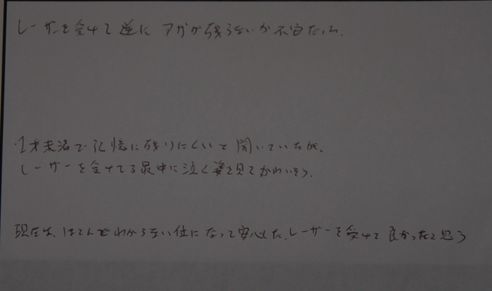 レーザーを受けて逆に アザが残らないか不安だった。
・1才未満で記憶に残りにくいと聞いていたが、
レーザーを受けてる最中に泣く姿を見てかわいそう。
現在は、ほとんどわからない位になって安心した。レーザーを受けて良かったと思う